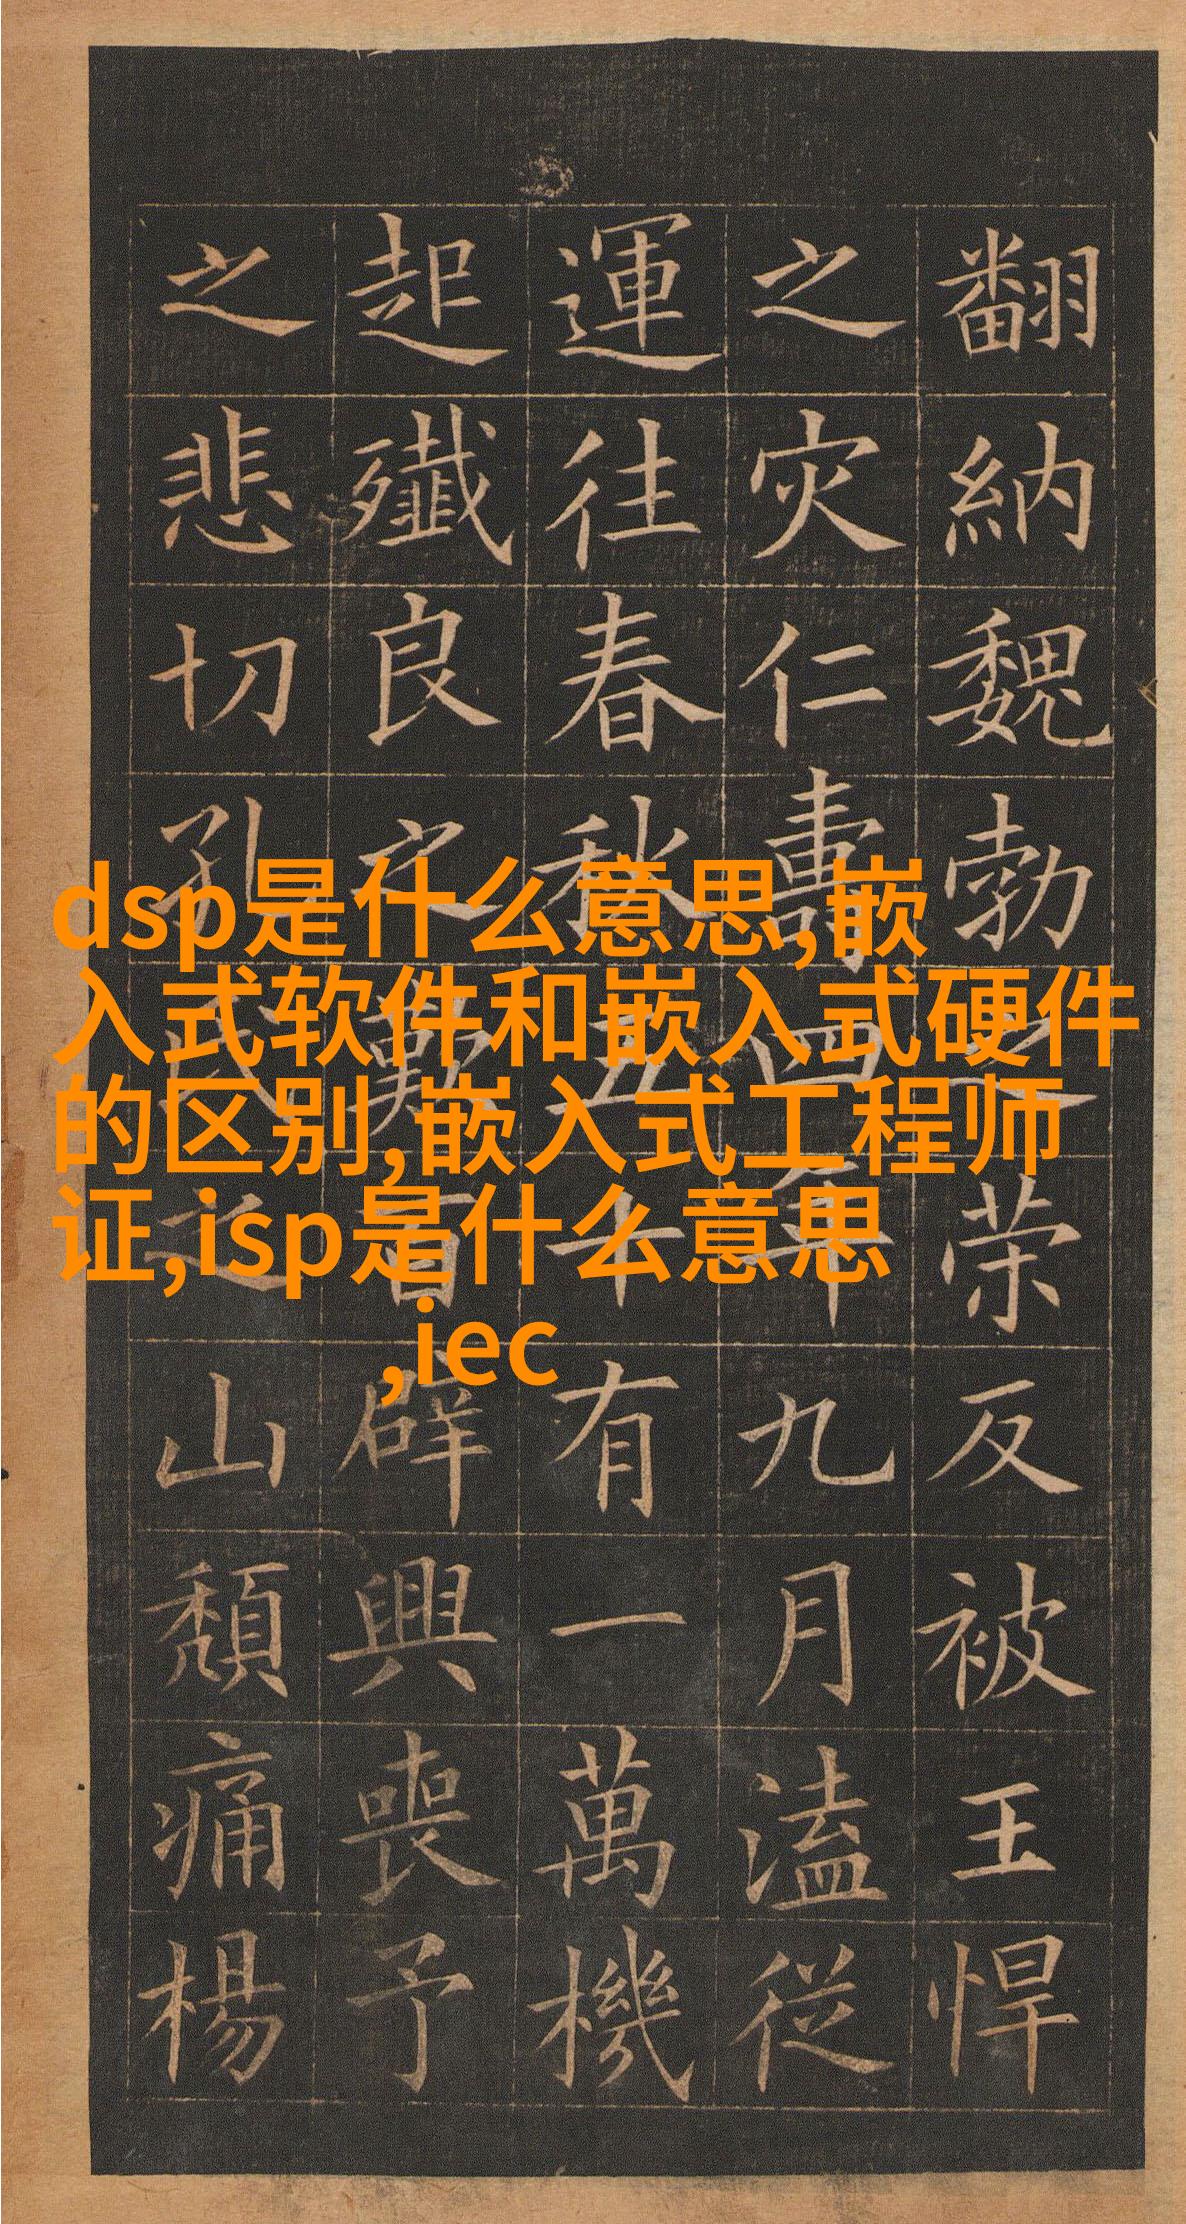 翻納魏勃之荣反被王悍
之灾仁壽四年九月溘從
運往春秋五十有一萬機
起殲良之歎百辟興喪予
之悲切孔氏之山頹痛楊
dsp是什么意思,嵌
入式软件和嵌入式硬件
的区别,嵌入式工程师
证,isp是什么意思
,iec